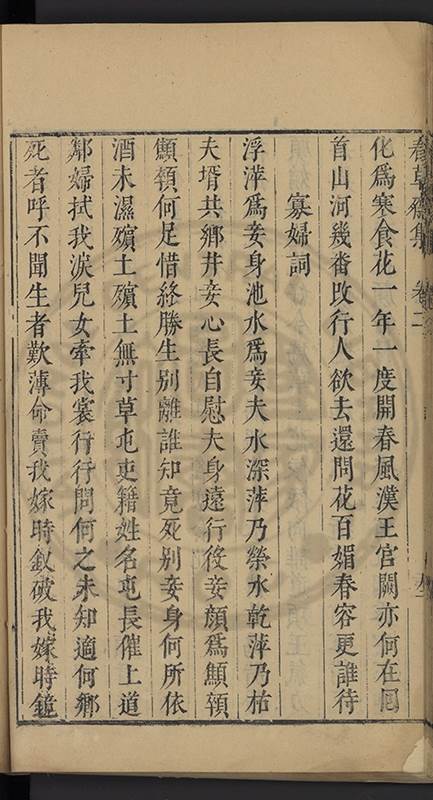 春草齋集 卷二
化爲寒食花一年一度開春風漢王宫闕亦何在回
首山河幾畨改行人欲去還問花百媚春容更誰待
寡婦詞
浮萍爲妾身池水爲妾夫水深萍乃榮水乾萍乃枯
夫壻共鄉井妾心長自慰夫身遠行役妾顔爲顦顇
顦顇何足惜終勝生别離誰知竟死别妾身何所依
酒未濕殯土殯土無寸草屯吏籍姓名屯長催上道
鄰婦拭我淚兒女牽我裳行行問何之未知適何鄉
死者呼不聞生者歎薄命賣我嫁時釵破我嫁時鏡